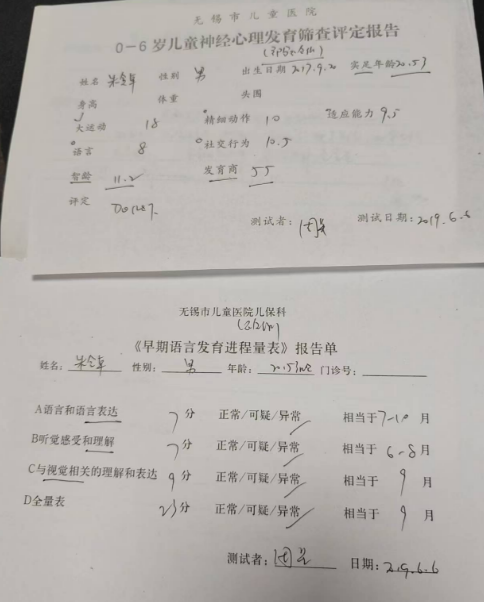 无锡市儿童医院
0-6岁儿童神经心理发育筛查评定报告
姓名 性别 男 出生日期 2017.9.20 实足年龄 20.5月
身高 体重 头围
大运动 18 精细动作 10 适应能力 9.5
语言 8 社交行为 10.5
智龄 11.2 发育商 55
评定
测试者: 测试日期: 2019.6.6
无锡市儿童医院儿保科
《早期语言发育进程量表》报告单
姓名: 性别: 男 年龄: 门诊号:
A语言和语言表达 7分 正常/可疑/异常 相当于 7-10 月
B听觉感受和理解 7分 正常/可疑/异常 相当于 6-8 月
C与视觉相关的理解和表达 9分 正常/可疑/异常 相当于 9 月
D全量表 23分 正常/可疑/异常 相当于 9 月
测试者: 日期: 2019.6.6